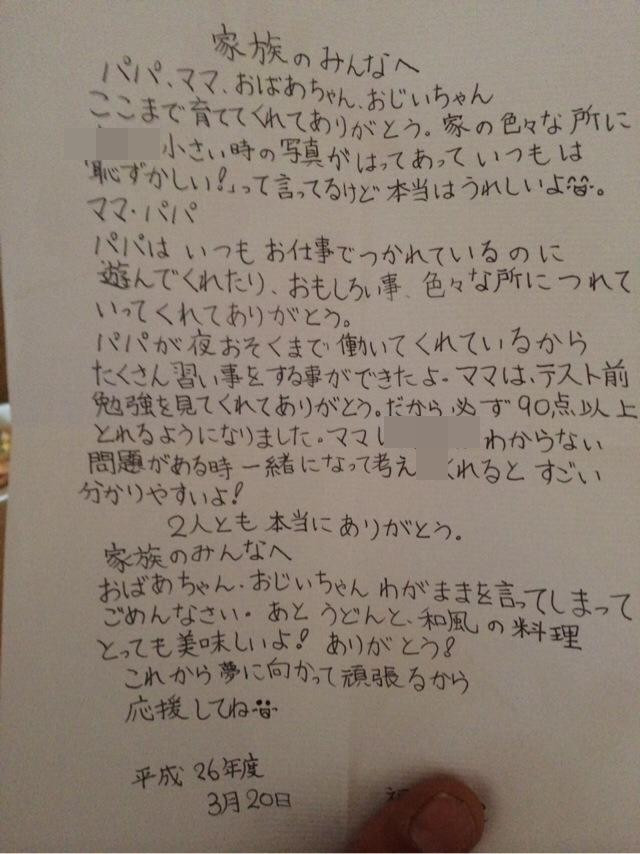 家族のみんなへ
パパ、ママ、おばあちゃん、おじいちゃん
ここまで育ててくれてありがとう。家の色々な所に
小さい時の写真がはってあっていつもは
「恥ずかしい!」って言ってるけど本当はうれしいよ。
ママ・パパ
パパはいつもお仕事でつかれているのに
遊んでくれたり、おもしろい事、色々な所につれて
いってくれてありがとう。
パパが夜おそくまで働いてくれているから
たくさん習い事をする事ができたよ。ママは、テスト前
勉強を見てくれてありがとう。だから必ず90点以上
とれるようになりました。ママ わからない
問題がある時一緒になって考え くれるとすごい
分かりやすいよ!
2人とも本当にありがとう。
家族のみんなへ
おばあちゃん、おじいちゃんわがままを言ってしまって
ごめんなさい。あとうどんと、和風の料理
とっても美味しいよ!ありがとう!
これから夢に向かって頑張るから
応援してね
平成26年度
3月20日